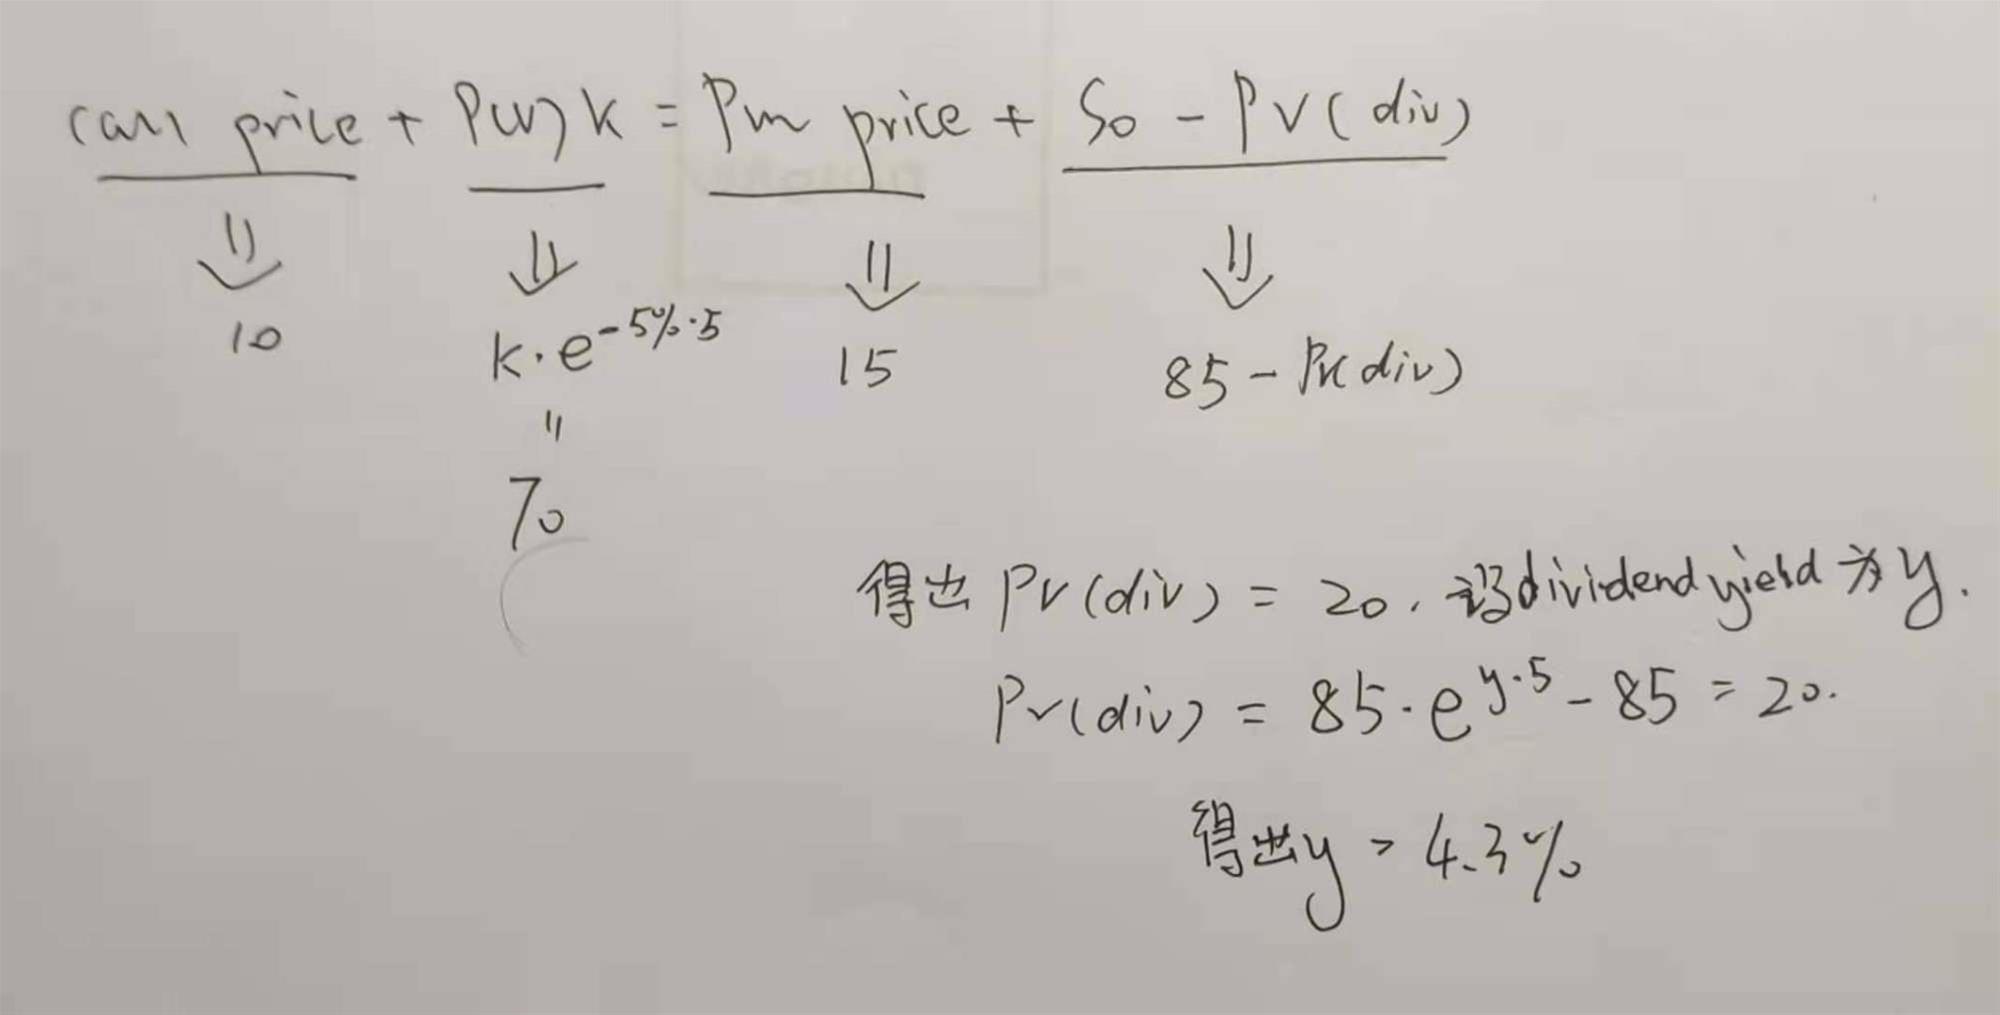 call price + PV(K) = Put price + S0 - PV(div)
10 K·e^-5%·5 15 85 - PV(div)
=
70
得出 PV(div) = 20. 设dividend yield 为 y.
PV(div) = 85·e^y·5 - 85 = 20.
得出y = 4.3%